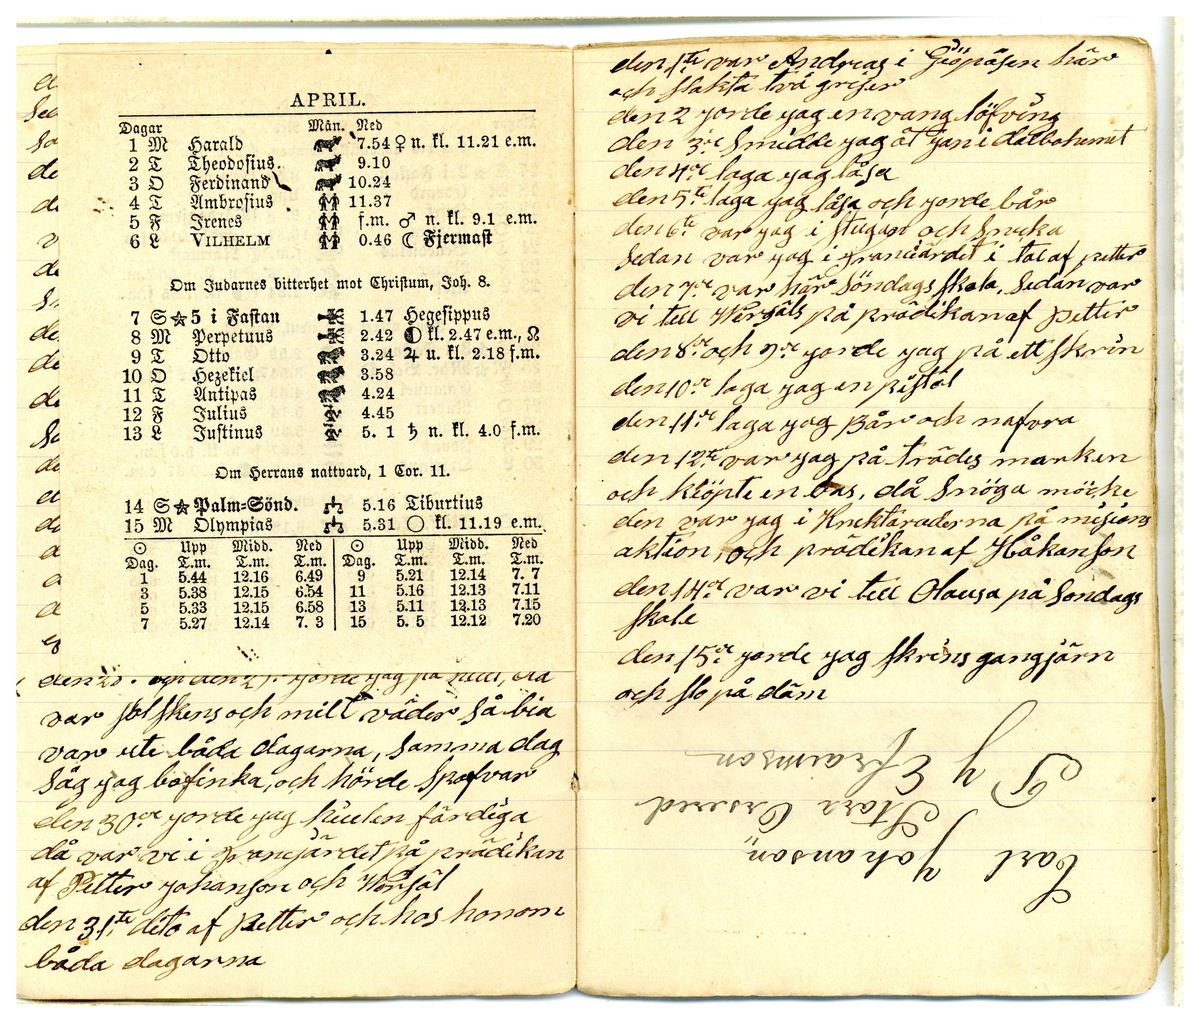 APRIL.
Dagar Mån. Ned
1 M Harald 7.54 ♀ n. kl. 11.21 e.m.
2 T Theodosius. 9.10
3 O Ferdinand 10.24
4 T Ambrosius 11.37
5 F Irenes f.m. ♂ n. kl. 9.1 e.m.
6 L VILHELM 0.46 ☾ Fjermast
Om Judarnes bitterhet mot Christum, Joh. 8.
7 S 5 i Fastan 1.47 Hegesippus
8 M Perpetuus 2.42 kl. 2.47 e.m., ☊
9 T Otto 3.24 ♃ u. kl. 2.18 f.m.
10 O Hezekiel 3.58
11 T Antipas 4.24
12 F Julius 4.45
13 L Justinus 5. 1 ♄ n. kl. 4.0 f.m.
Om Herrans nattvard, 1 Cor. 11.
14 S Palm-Sönd. 5.16 Tiburtius
15 M Olympias 5.31 ○ kl. 11.19 e.m.
☉ Upp Midd. Ned ☉ Upp Midd. Ned
Dag. T.m. T.m. T.m. Dag. T.m. T.m. T.m.
1 5.44 12.16 6.49 9 5.21 12.14 7. 7
3 5.38 12.15 6.54 11 5.16 12.13 7.11
5 5.33 12.15 6.58 13 5.11 12.13 7.15
7 5.27 12.14 7. 3 15 5. 5 12.12 7.20
yorde yag på
var solskens och milt väder så bia
var ute båda dagarna, samma dag
såg yag bofinka, och hörde spofvar
den 30 yorde yag hiulen färdiga
då var vi i franciärdet på prädikan
af Petter yohanson och Wersäl
den 31te dito af petter och hos honom
båda dagarna
den 1te var Andreas i här
och slakta två griser
den 2 yorde yag en vang
den 3 smidde yag åt yan i
den 4 laga yag låsa
den 5te laga yag låsa och yorde bår
den 6te var yag i stugan och snicka
sedan var yag i franciärdet i tal af petter
den 7 var här söndags skola, sedan var
vi till Wersäls på prädikan af petter
den 8 och 9 yorde yag på ett skrin
den 10 laga yag en pistål
den 11 laga yag Bår och nafvra
den 12te var yag på trädes marken
och klöpte en bas, då snöga möcke
den var yag i Knektaraderna på misions
aktion, och prädikan af Håkanson
den 14 var vi till Olausa på Sondags
skole
den 15 yorde yag skrins gangjärn
och slo på däm
Carl Johanson
Stora Orsered
T y Efraimson